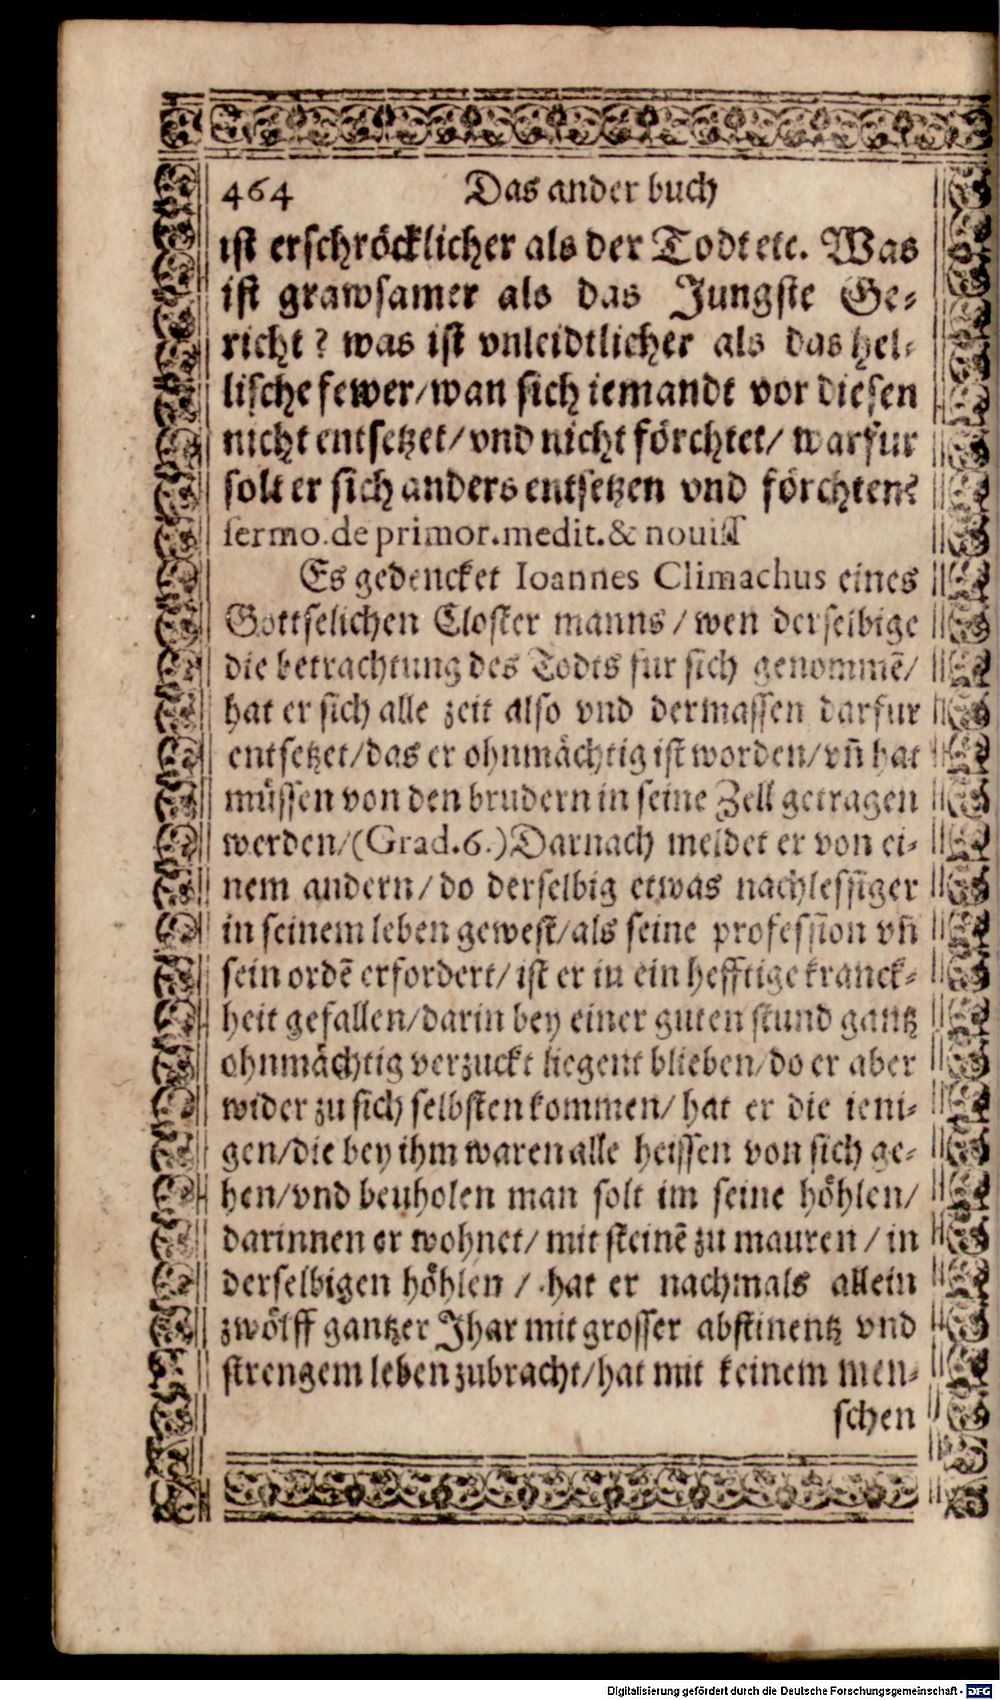 464 Das ander buch
ist erschröcklicher als der Todt etc. Was
ist grawsamer als das Jungste Ge-
richt? was ist vnleidtlicher als das hel-
lische fewer/wan sich iemandt vor diesen
nicht entsetzet/vnd nicht förchtet/ warfur
solt er sich anders entsetzen vnd förchten?
sermo.de primor.medit.& nouiss
Es gedencket Ioannes Climachus eines
Gottselichen Closter manns / wen derselbige
die betrachtung des Todts fur sich genommē/
hat er sich alle zeit also vnd dermassen darfur
entsetzet/das er ohnmächtig ist worden/vn̄ hat
müssen von den brudern in seine Zell getragen
werden/(Grad.6.)Darnach meldet er von ei-
nem andern/do derselbig etwas nachlessiger
in seinem leben gewest/als seine profession vn̄
sein ordē erfordert/ist er in ein hefftige kranck-
heit gefallen/darin bey einer guten stund gantz
ohnmächtig verzuckt liegent blieben/do er aber
wider zu sich selbsten kommen/ hat er die ieni-
gen/die bey ihm waren alle heissen von sich ge-
hen/vnd beuholen man solt im seine höhlen/
darinnen er wohnet/ mit steinē zu mauren / in
derselbigen höhlen / hat er nachmals allein
zwölff gantzer Jhar mit grosser abstinentz vnd
strengem leben zubracht/hat mit keinem men-
schen
Digitalisierung gefördert durch die Deutsche Forschungsgemeinschaft - DFG